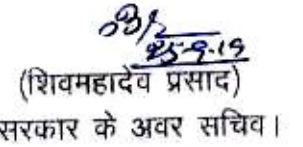 25-9-19
(शिवमहादेव प्रसाद)
सरकार के अवर सचिव।